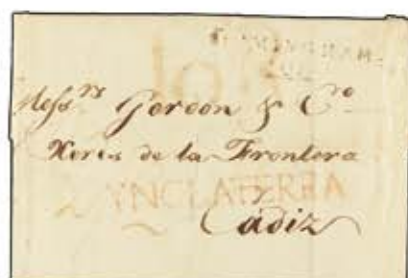 Mess.rs Gordon & Co.
Xeres de la Frontera
YNGLATERRA
Cadiz